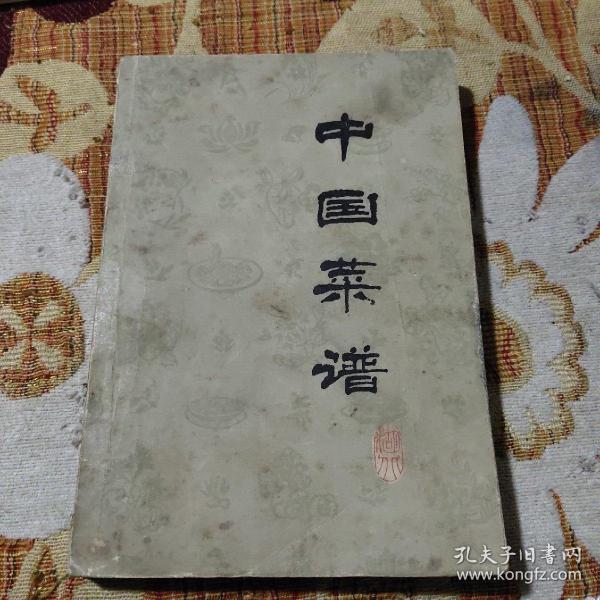 中国菜谱
孔夫子旧書网
www.kongfz.com